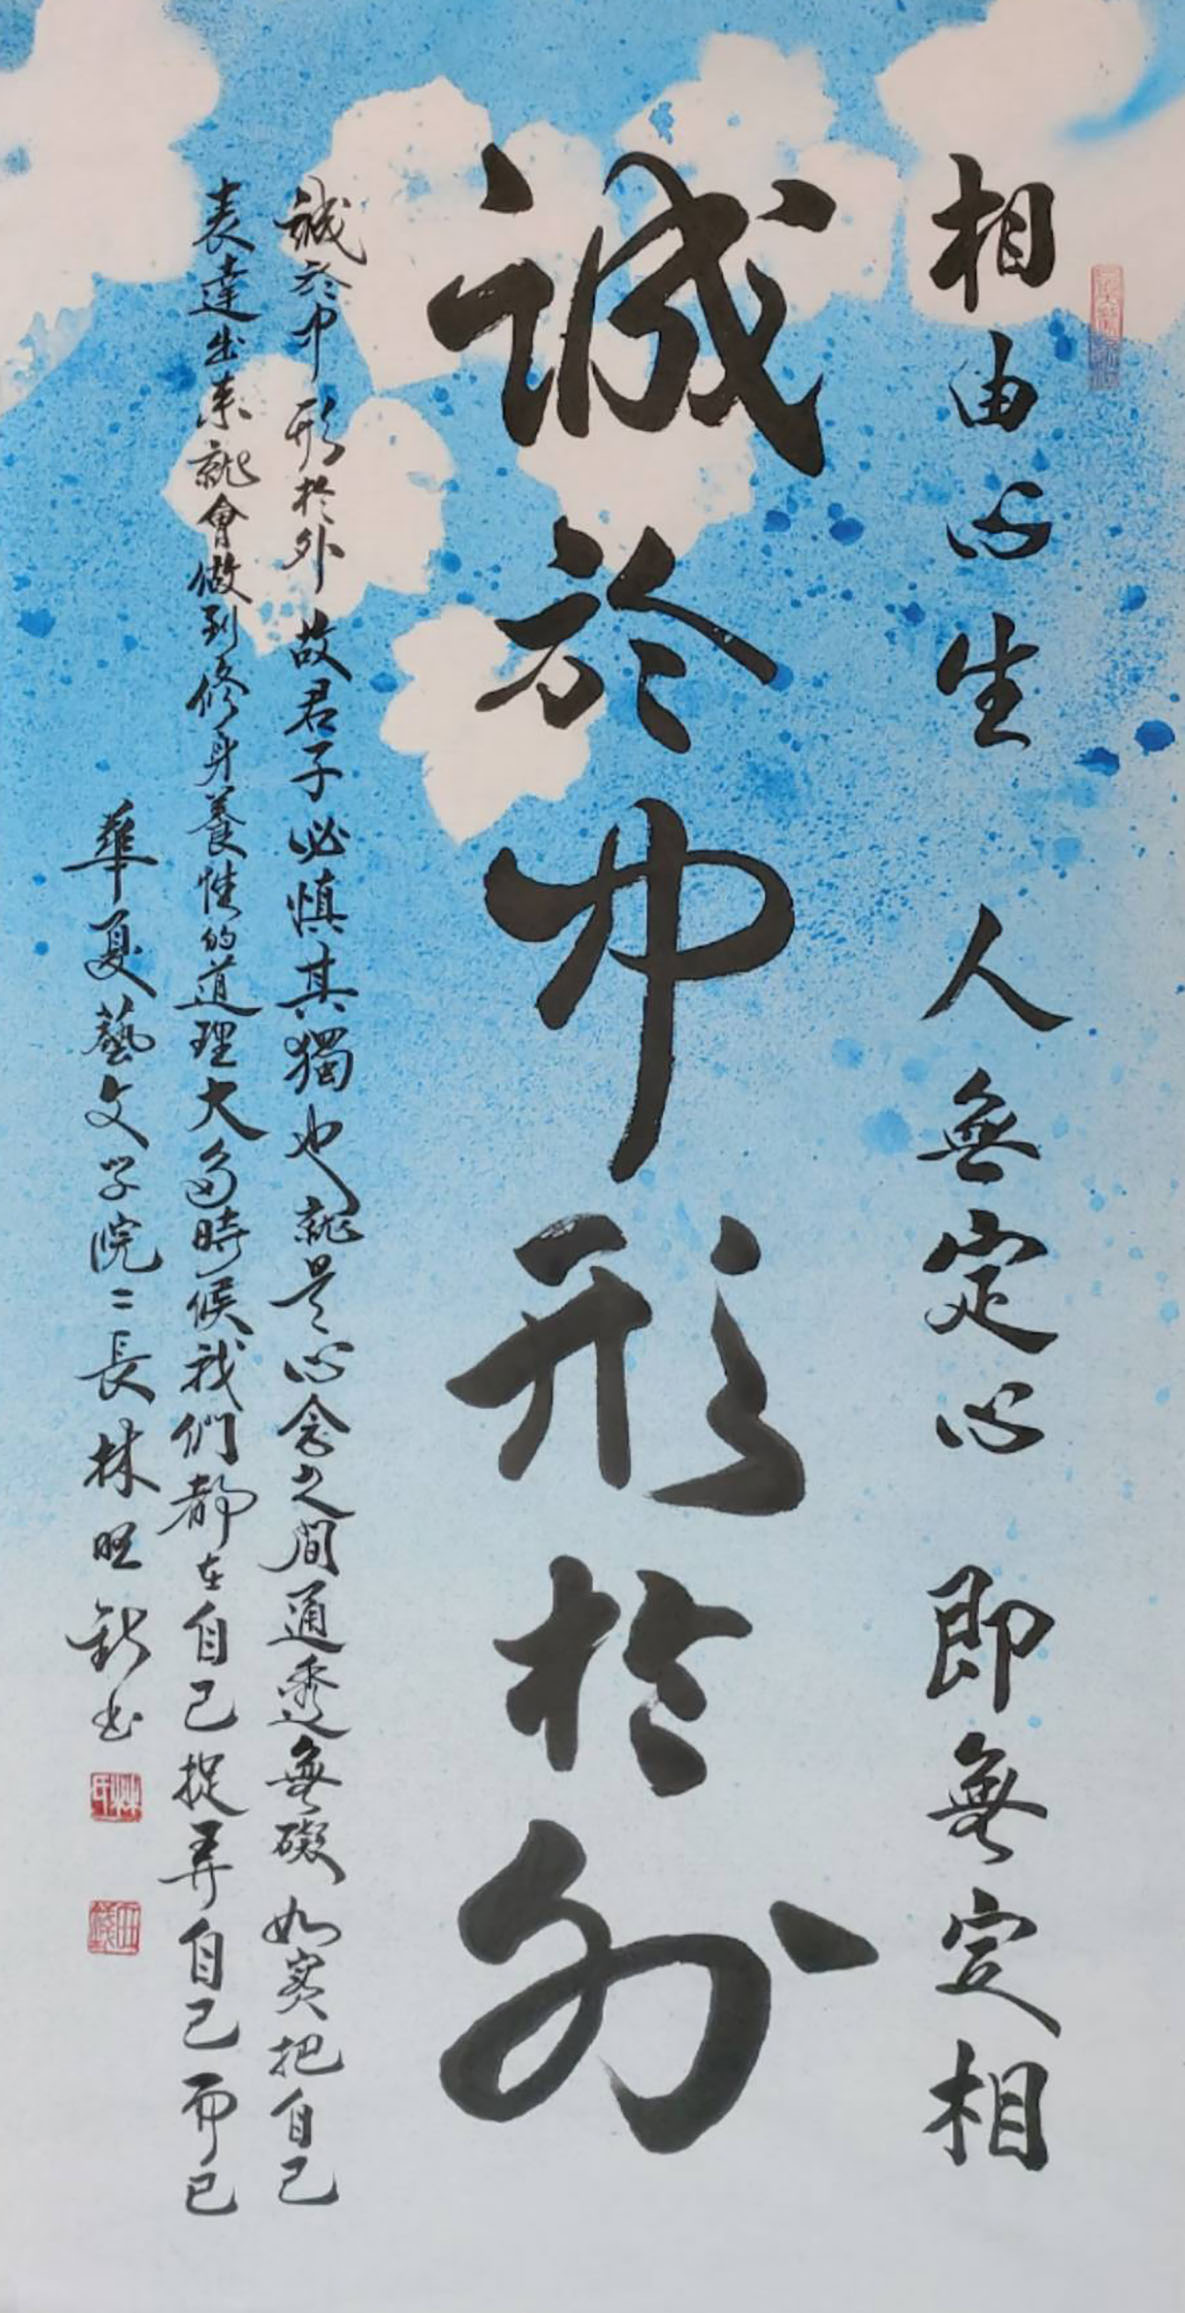 相由心生 人無定心 即無定相
誠於中形於外
誠於中 形於外 故君子必慎其獨也就是心念之間通透無礙 如實把自己
表達出來就會做到修身養性的道理大多時候我們都在自己捉弄自己而已
華夏藝文學院二長林旺錢書
林氏
旺錢